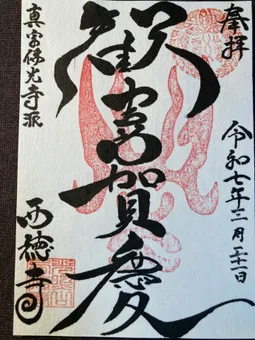 奉拝
令和七年三月二十一日
歡喜賀慶
真宗佛光寺派
西徳寺